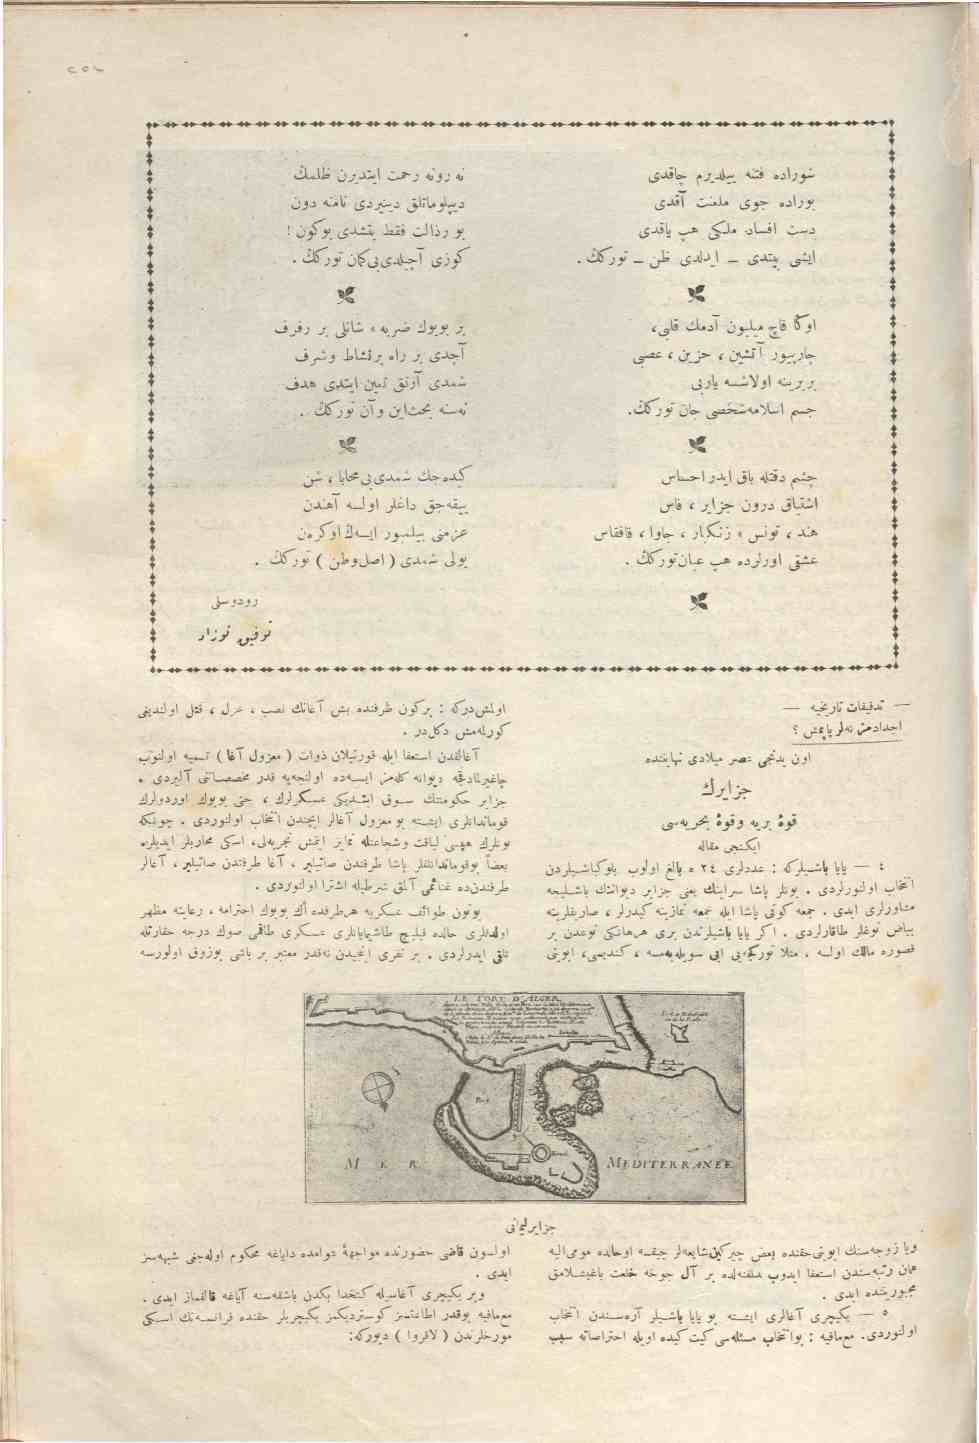 شوراده فتنه ييلديرم چاقدى
بوراده جوى ملعنت آقدى
دست افساد ملكى هپ ياقدى
ايشى بيتدى ــ ايدلدى ظن ــ توركك .
اوكا قاچ ميليون آدمك قلبى،
چارپيور آتشين ، حزين ، عصبى
بربرينه اولاشسه يارى
جسم اسلامه شخصى جان توركك.
چشم دقتله باق ايدر احساس
اشتياق درون جزاير ، فاس
هند ، تونس ، زنكبار ، جاوا ، قافقاس
عشقى اورلرده هپ عيان توركك .
نه روته رحمت ايتديرن ظلمك
ديپلوماتلق دينيردى نامنه دون
بو رذالت فقط يتشدى بوكون !
كوزى آچيلدى بى كمان توركك .
بر بويوك ضربه ، شانلى بر رفرف
آچدى بر راه پرنشاط وشرف
شمدى آرتق تعيين ايتدى هدف
توركك .
كيده جك شمدى بى محابا ، شن
ييقه جق داغلر اولسه آهندن
عزمنى بيلميور ايسه ك اوكرهن
يولى شمدى ( اصل وطن ) توركك .
رودوسلى
توفيق نوزاد
— تدقيقات تاريخيه —
اجدادمز نه لر ياپمش ؟
اون يدنجى عصر ميلادى نهايتنده
جزايرك
قوهٔ بريه وقوهٔ بحريه سى
ايكنجى مقاله
٤ — يايا باشيلركه : عددلرى ٢٤ ه بالغ اولوب بلوكباشيلردن
انتخاب اولنورلردى . بونلر پاشا سراينك يعنى جزاير ديواننك باشليجه
مشاورلرى ايدى . جمعه كونى پاشا ايله جمعه نمازينه كيدرلر ، صاريقلرينه
بياض توغلر طاقارلردى . اكر يايا باشيلرندن برى هرهانكى نوعدن بر
قصوره مالك اولسه . مثلا توركجه يى ايى سويله يه مسه ، كنديسى، ابوينى
اولمش دركه : بركون ظرفنده بش آغانك نصب ، عزل ، قتل اولنديغى
كورلمه مش دكلدر .
آغالقدن استعفا ايله قورتيلان ذوات ( معزول آغا ) تسميه اولنوب
چاغيرلمادقجه ديوانه كله مز ايسه ده اولنجه يه قدر مخصصاتنى آليردى .
جزاير حكومتنك سوق ايتديكى عسكرلرك ، حتى بويوك اوردولرك
قوماندانلرى ايشته بو معزول آغالر ايچندن انتخاب اولنوردى . چونكه
بونلرك هپسى لياقت وشجاعتله تمايز ايتمش تجربه لى، اسكى محاربلر ايديلر.
بعضاً بوقوماندانلقلر پاشا طرفندن صاتيلير ، آغا طرفندن صاتيلير ، آغالر
طرفندن ده غنائمى آلمق شرطيله اشترا اولنوردى .
بوتون طوائف عسكريه هرطرفده اك بويوك احترامه ، رعايته مظهر
اولدقلرى حالده قيليج طاشيمايانلرى عسكرى طاقمى صوك درجه حقارتله
تلقى ايدرلردى . بر نفرى اينجيدن نه قدر معتبر بر باشى بوزوق اولورسه
LE PORT D'ALGER
MER
MEDITERRANEE
جزاير ليمانى
ويا زوجه سنك ابوينى حقنده بعض چيركين شايعه لر چيقسه اوحالده مومى اليه
همان رتبه سندن استعفا ايدوب خلفنه ده بر آل چوخه خلعت باغيشلامق
مجبوريتنده ايدى .
٥ — يكيچرى آغالرى ايشته بو يايا باشيلر آره سندن انتخاب
اولنوردى. مع مافيه : بو انتخاب مسئله سى كيت كيده اويله احتراصاته سبب
اولسون قاضى حضورنده مواجههٔ دوامده داياغه محكوم اوله جغى شبهه سز
ايدى .
وبر يكيچرى آغاسيله كتخدا بكدن باشقه سنه آياغه قالقماز ايدى .
مع مافيه بوقدر اطاعتسز كوسترديكمز يكيچريلر حقنده فرانسه نك اسكى
مورخلرندن ( لاقروا ) ديوركه: